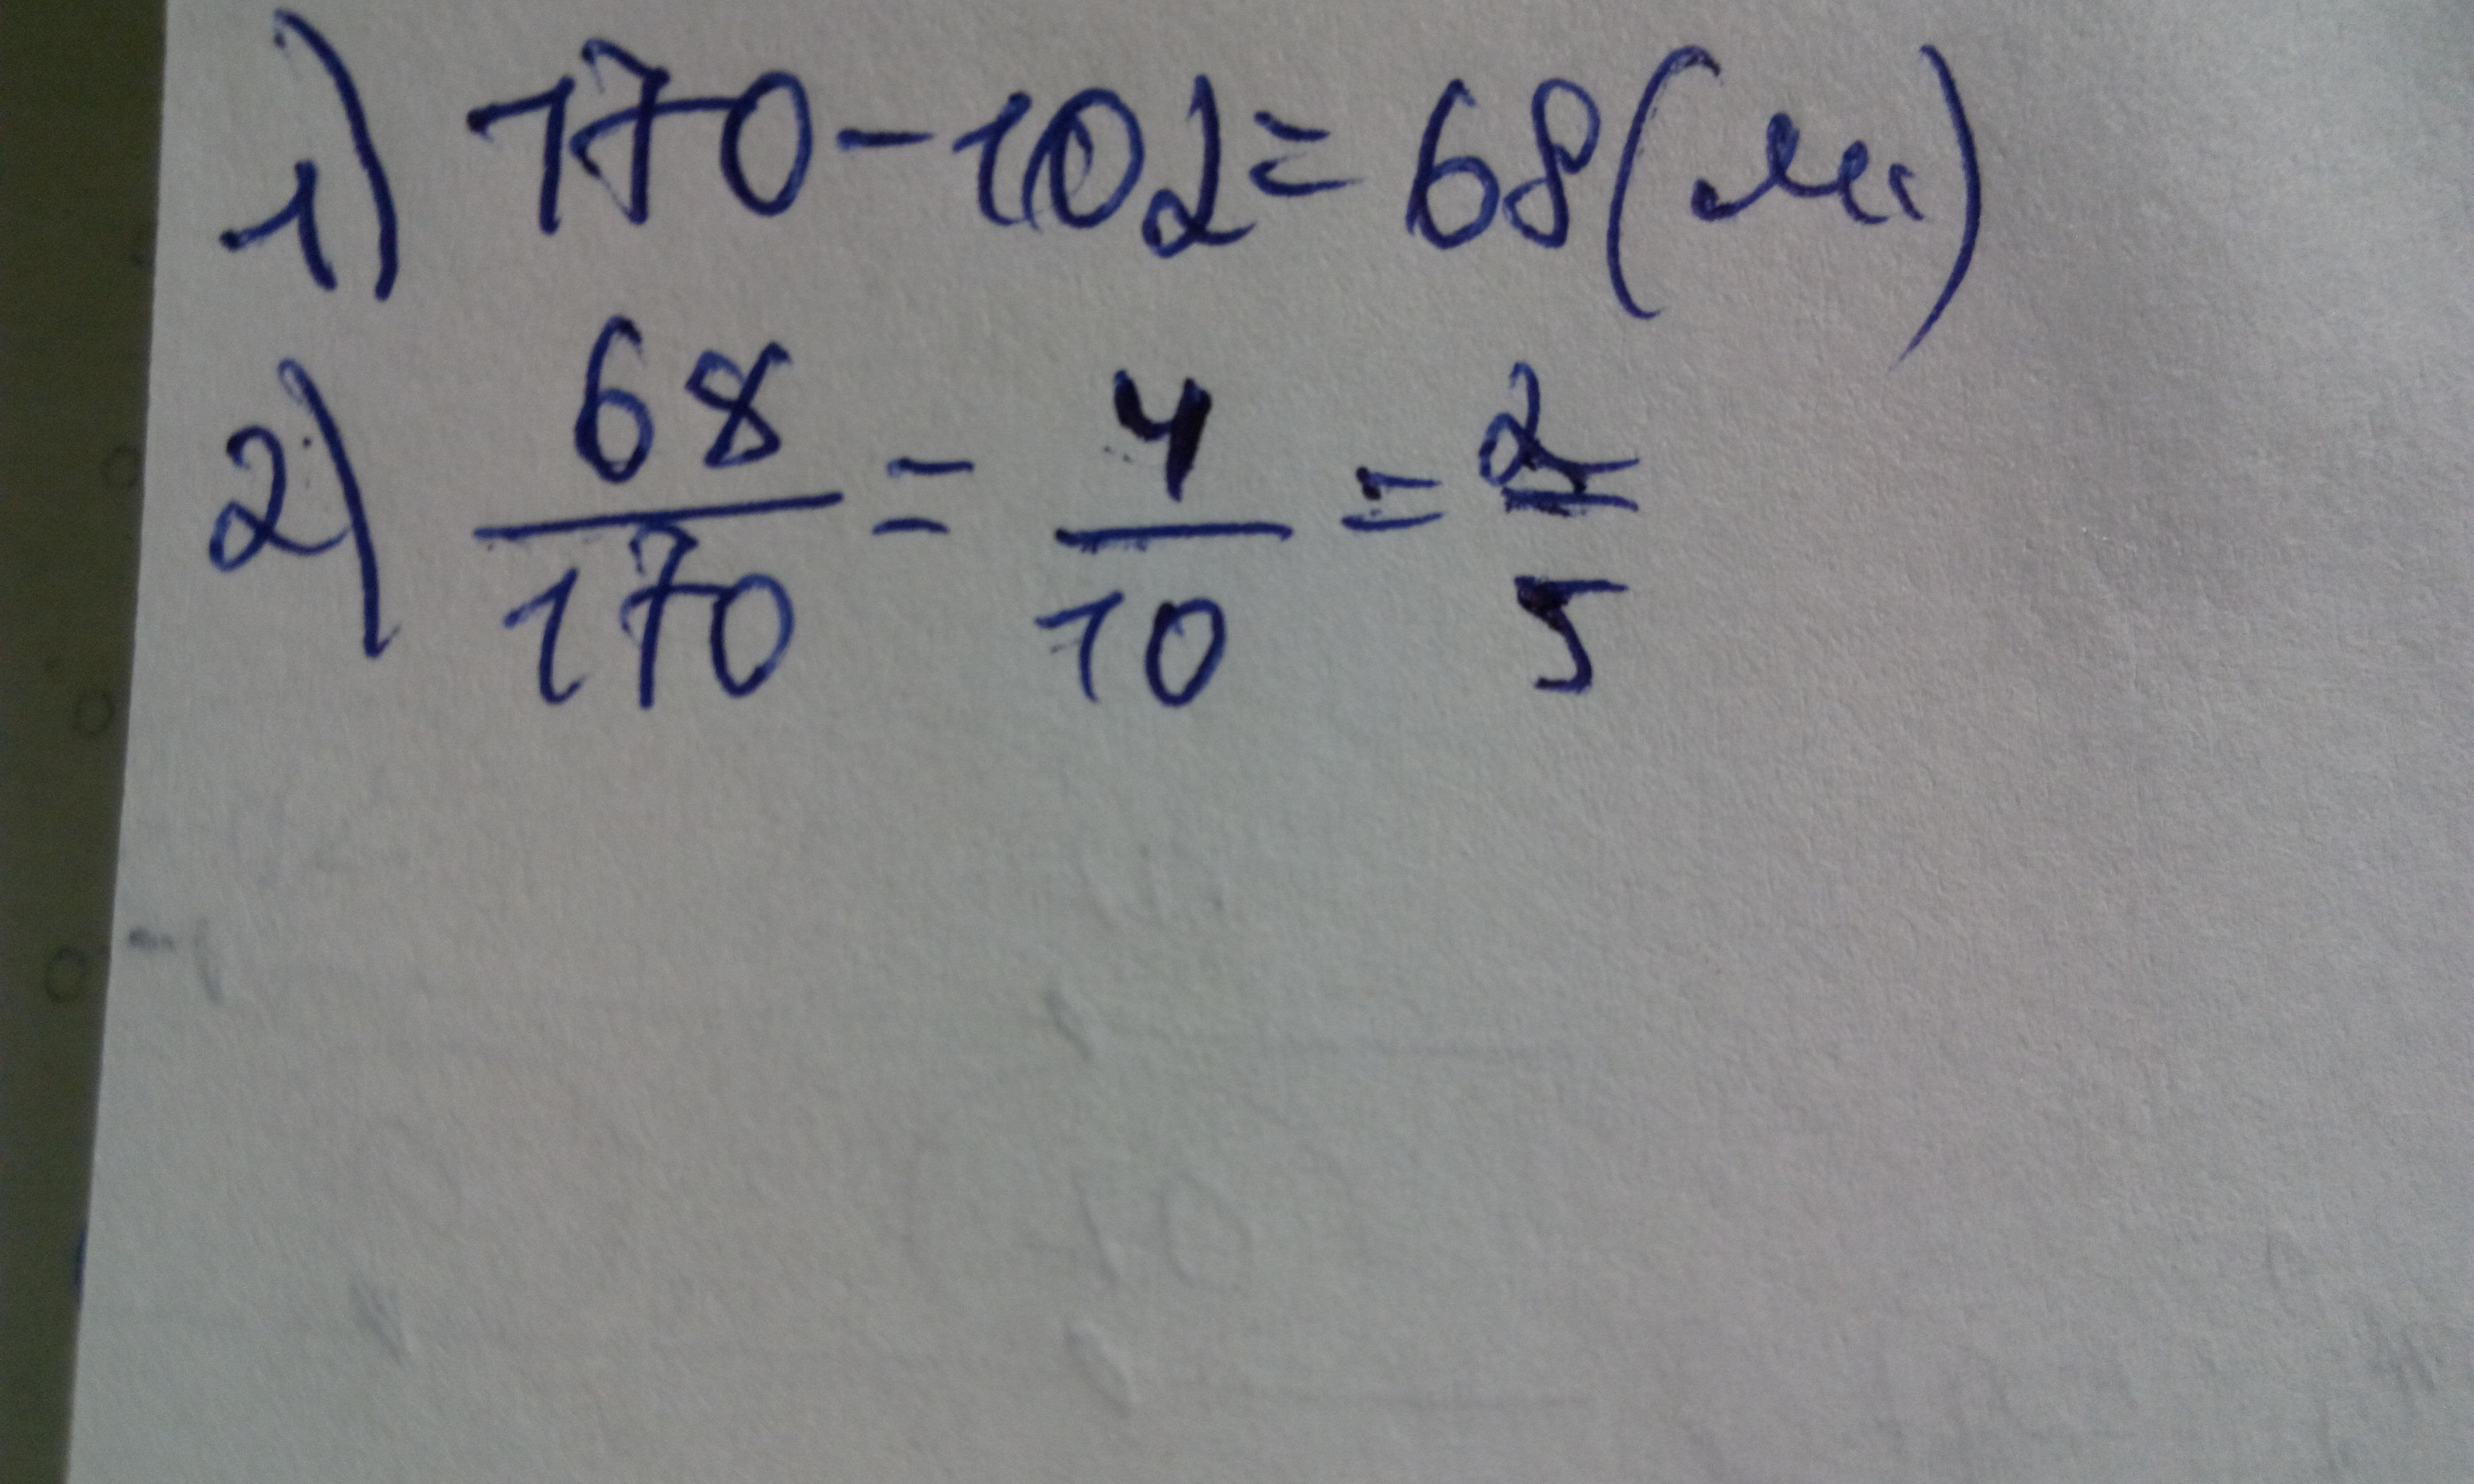 1) 170-102=68(м)
2) 68/170 = 4/10 = 2/5